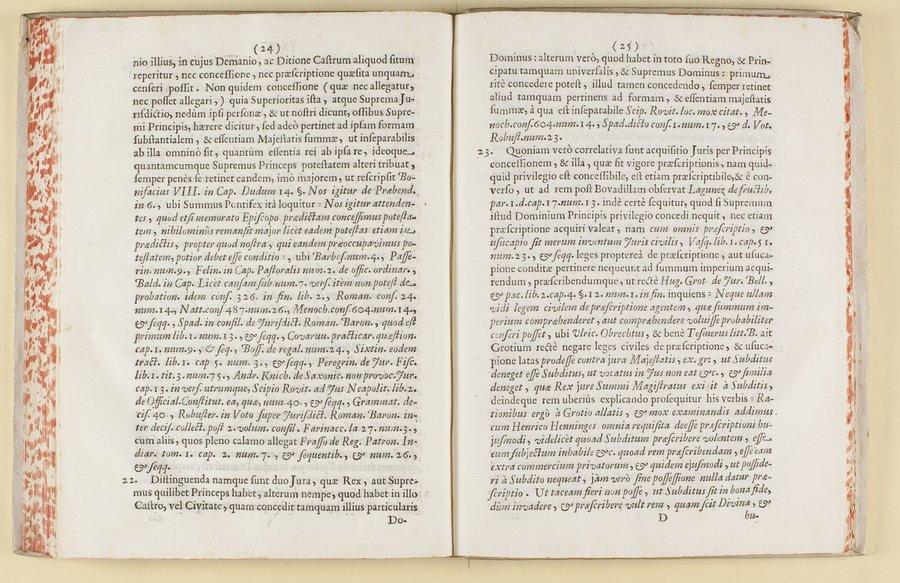 (24)
nio illius, in cujus Demanio, ac Ditione Castrum aliquod situm
reperitur, nec concessione, nec præscriptione quæsita unquam
censeri possit. Non quidem concessione (quæ nec allegatur,
nec posset allegari,) quia Superioritas ista, atque Suprema Ju-
risdictio, nedùm ipsi personæ, & ut nostri dicunt, ossibus Supre-
mi Principis, hærere dicitur, sed adeò pertinet ad ipsam formam
substantialem, & essentiam Majestatis summæ, ut inseparabilis
ab illa omninò sit, quantùm essentia rei ab ipsa re, ideoque
quantamcumque Supremus Princeps potestatem alteri tribuat,
semper penès se retinet eandem, imò majorem, ut rescripsit Bo-
nifacius VIII. in Cap. Dudum 14. §. Nos igitur de Præbend.
in 6., ubi Summus Pontifex ità loquitur = Nos igitur attenden-
tes, quod etsi memorato Episcopo prædictam concessimus potesta-
tem, nihilominùs remansit major licèt eadem potestas etiam in
prædictis, propter quod nostra, qui eandem præoccupavimus po-
testatem, potior debet esse conditio =, ubi Barbos. num. 4., Passe-
rin. num. 9., Felin. in Cap. Pastoralis num. 2. de offic. ordinar.,
Bald. in Cap. Licet causam sub num. 7. vers. item non potest de
probation. idem cons. 326. in fin. lib. 2., Roman. cons. 24.
num. 14., Natt. cons. 487. num. 26., Menoch. cons. 604. num. 14.,
& seqq., Spad. in consil. de Jurisdict. Roman. Baron., quod est
primum lib. 1. num. 13., & seqq., Covarruv. practicar. quæstion.
cap. 1. num. 9., & seq., Boss. de regal. num. 24., Sixtin. eodem
tract. lib. 1. cap. 5. num. 3., & seqq., Peregrin. de Jur. Fisc.
lib. 1. tit. 3. num. 75., Andr. Knich. de Saxonic. non provoc. Jur.
cap. 13. in vers. utrumque, Scipio Rovit. ad Jus Neapolit. lib. 2.
de Official. Constitut. ea, quæ, num. 40., & seqq., Grammat. de-
cis. 40., Robuster. in Voto super Jurisdict. Roman. Baron. in-
ter decis. collect. post 2. volum. consil. Farinacc. la 27. num. 3.,
cum aliis, quos pleno calamo allegat Frasso de Reg. Patron. In-
diar. tom. 1. cap. 2. num. 7., & sequentib., & num. 26.,
& seqq.
22. Distinguenda namque sunt duo Jura, quæ Rex, aut Supre-
mus quilibet Princeps habet, alterum nempe, quod habet in illo
Castro, vel Civitate, quam concedit tamquam illius particularis
Do-
(25)
Dominus: alterum verò, quod habet in toto suo Regno, & Prin-
cipatu tamquam universalis, & Supremus Dominus: primum
ritè concedere potest, illud tamen concedendo, semper retinet
aliud tamquam pertinens ad formam, & essentiam majestatis
summæ, à qua est inseparabile Scip. Rovit. loc. mox citat., Me-
noch. cons. 604. num. 14., Spad. dicto cons. 1. num. 17., & d. Vot.
Robust. num. 23.
23. Quoniam verò correlativa sunt acquisitio Juris per Principis
concessionem, & illa, quæ fit vigore præscriptionis, nam quid-
quid privilegio est concessibile, est etiam præscriptibile, & è con-
verso, ut ad rem post Bovadillam observat Lagunez de fructib.
par. 1. d. cap. 17. num. 13. indè certè sequitur, quod si Supremum
istud Dominium Principis privilegio concedi nequit, nec etiam
præscriptione acquiri valeat, nam cum omnis præscriptio, &
usucapio sit merum inventum Juris civilis, Vasq. lib. 1. cap. 51.
num. 23., & seqq. leges propterea de præscriptione, aut usuca-
pione conditæ pertinere nequeunt ad summum imperium acqui-
rendum, præscribendumque, ut rectè Hug. Grot. de Jur. Bell.,
& pac. lib. 2. cap. 4. §. 12. num. 1. in fin. inquiens = Neque ullam
vidi legem civilem de præscriptione agentem, quæ summum im-
perium compræhenderet, aut compræhendere voluisse probabiliter
censeri posset, ubi Ulric. Obrechtus, & benè Tesmerus litt. B. ait
Grotium rectè negare leges civiles de præscriptione, & usuca-
pione latas prodesse contra jura Majestatis, ex. gr., ut Subditus
deneget esse Subditus, ut vocatus in Jus non eat &c., & similia
deneget, quæ Rex jure Summi Magistratus exigit à Subditis,
deindeque rem uberiùs explicando prosequitur his verbis = Ra-
tionibus ergò à Grotio allatis, & mox examinandis addimus
cum Henrico Henninges omnia requisita deesse præscriptioni hu-
jusmodi, videlicèt quoad Subditum præscribere volentem, esse
eum subjectum inhabile &c. quoad rem præscribendam, esse eam
extra commercium privatorum, & quidem ejusmodi, ut posside-
ri à Subdito nequeat, jàm verò sine possessione nulla datur præ-
scriptio. Ut taceam fieri non posse, ut Subditus sit in bona fide,
dùm invadere, & præscribere vult rem, quam scit Divina, &
D hu-